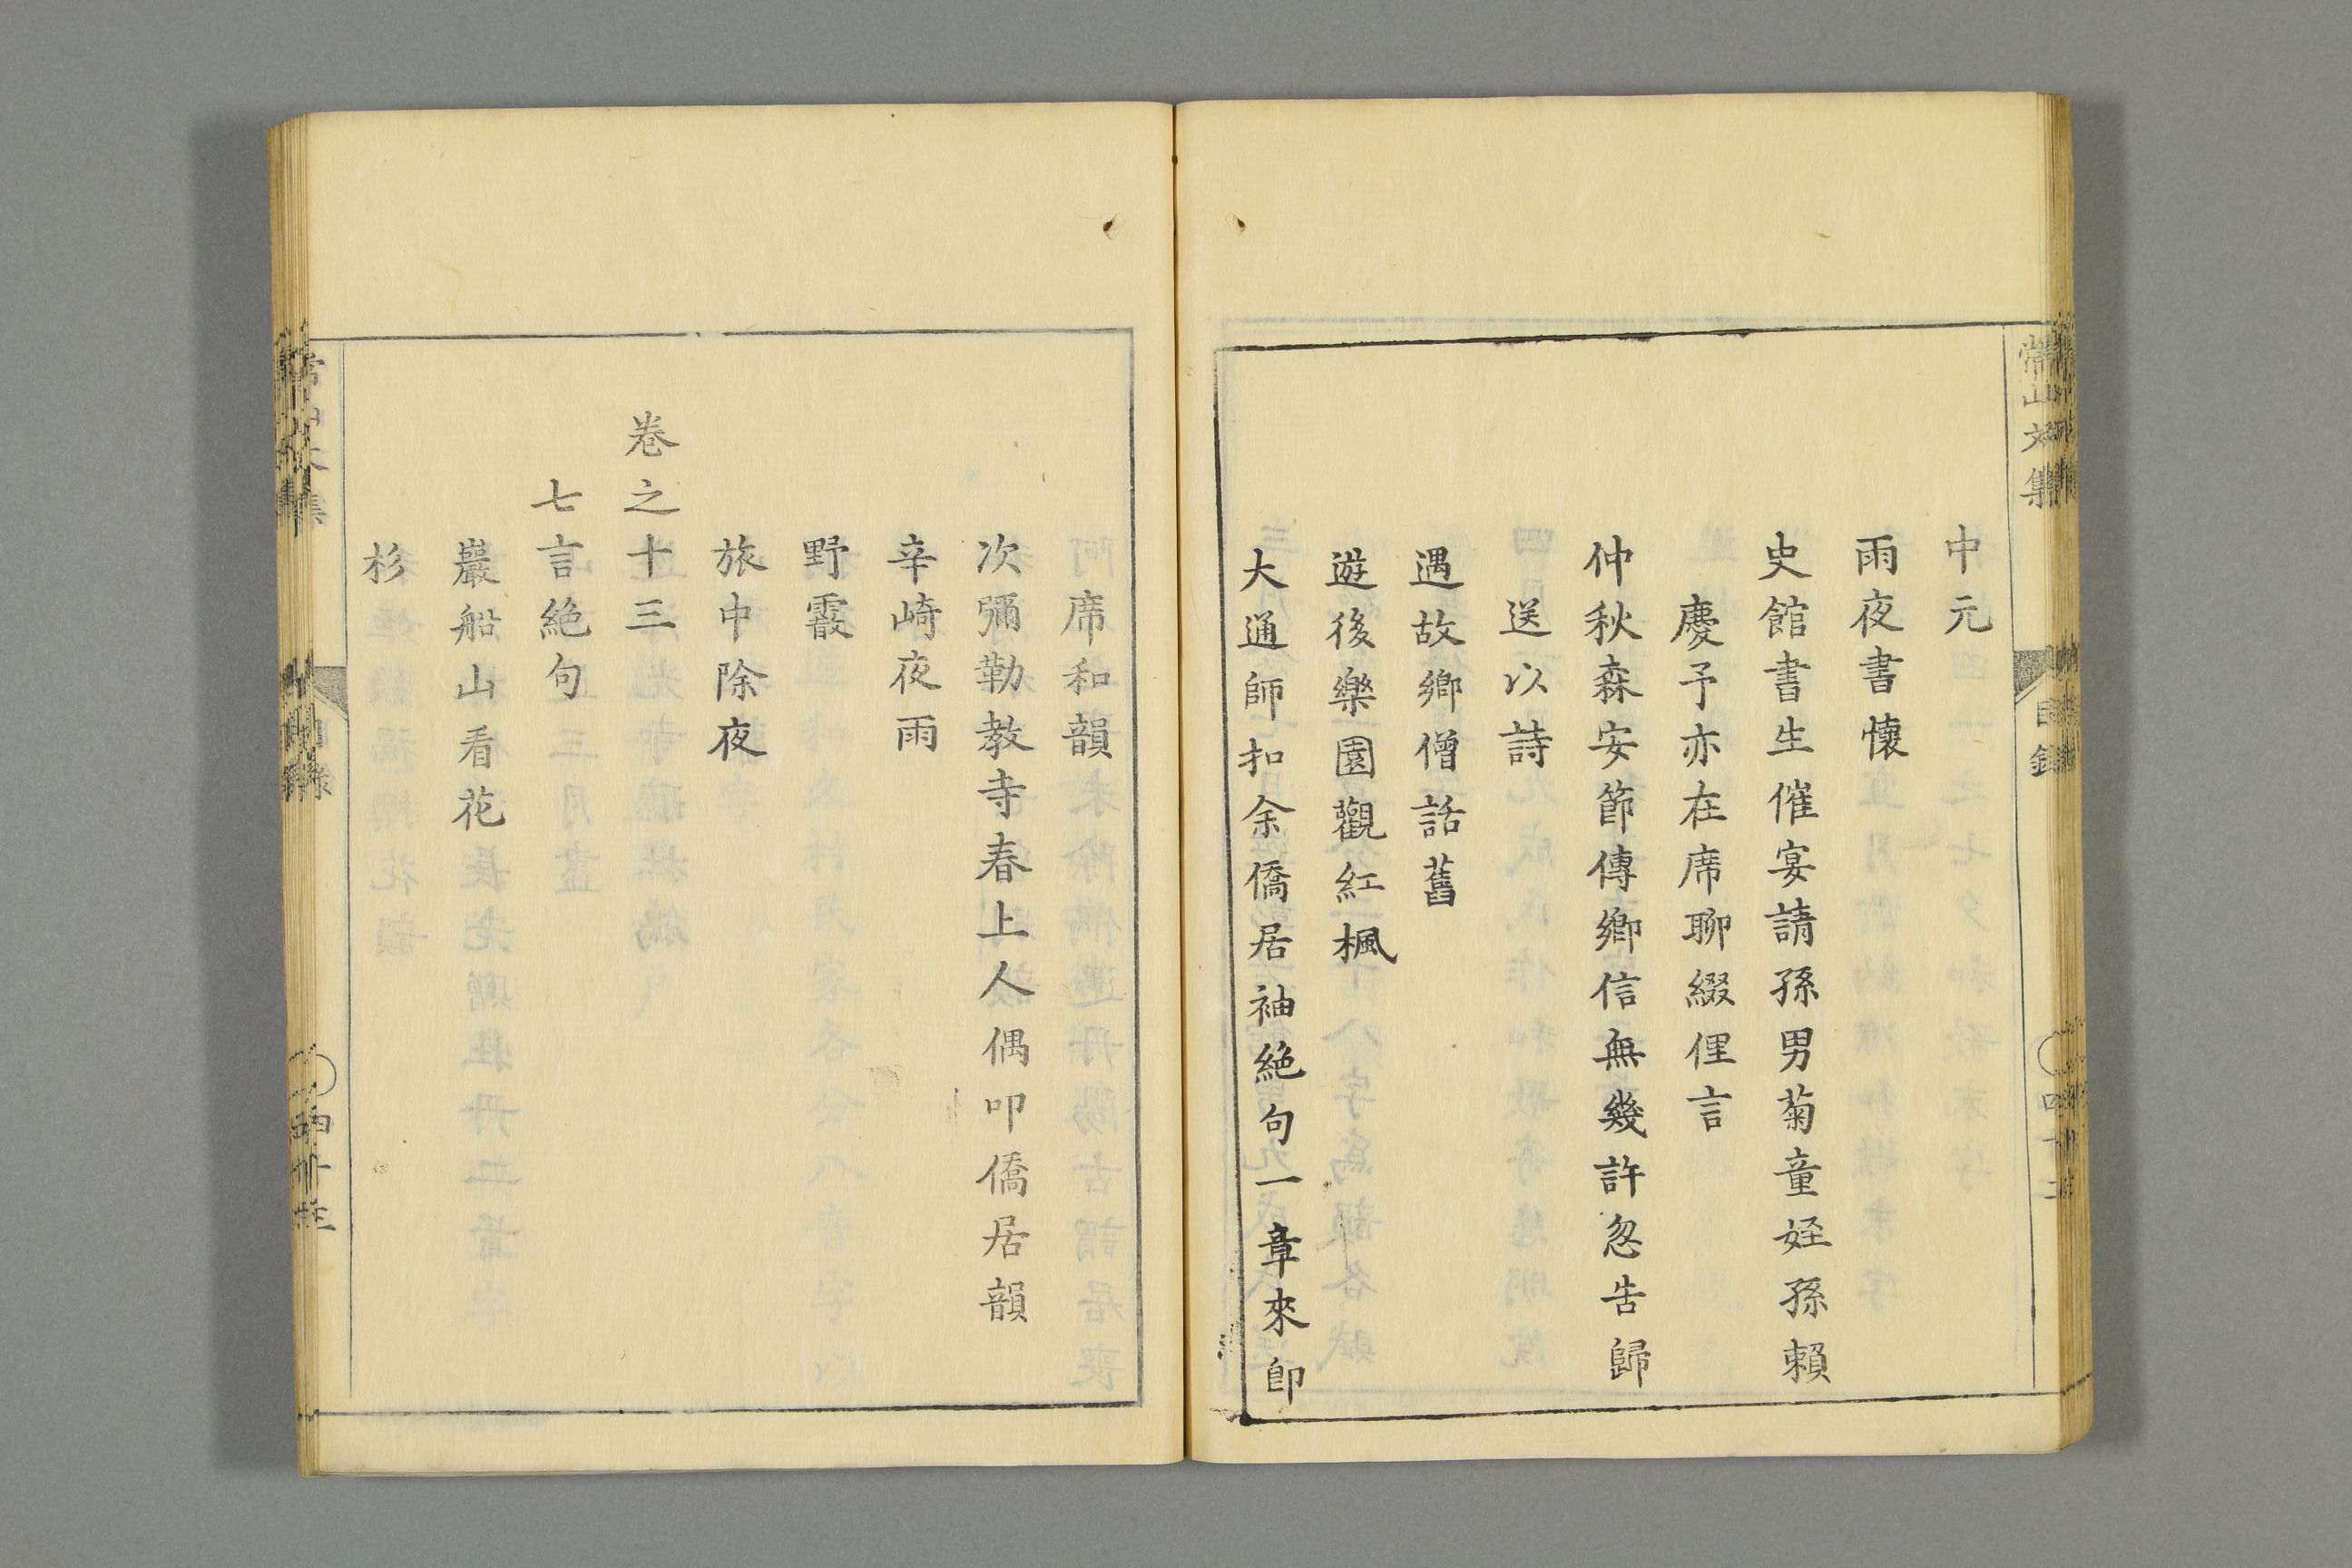 常山文集
目錄
中元
雨夜書懷
史館書生催宴請孫男菊童姪孫賴
慶予亦在席聊綴俚言
仲秋森安節傳鄉信無幾許忽告歸
送以詩
遇故鄉僧話舊
遊後樂園觀紅楓
大通師扣余僑居袖絶句一章來卽
席和韻
次彌勒教寺春上人偶叩僑居韻
辛崎夜雨
野霰
旅中除夜
卷之十三
七言絶句
巖船山看花
杉